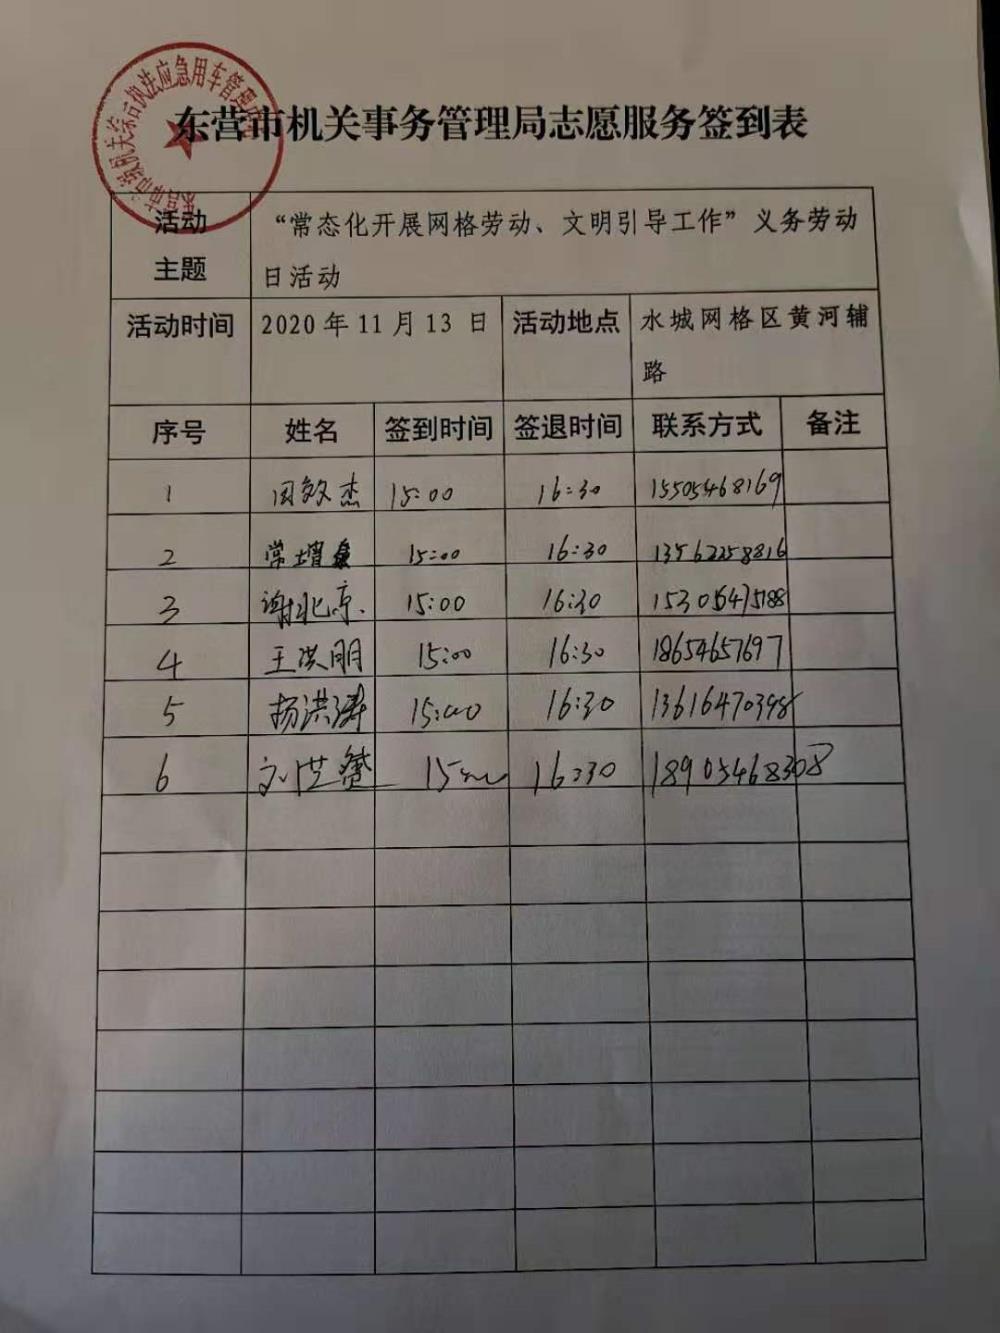 东营市机关事务管理局志愿服务签到表
活动 “常态化开展网格劳动、文明引导工作”义务劳动
主题 日活动
活动时间 2020年11月13日 活动地点 水城网格区黄河辅
路
序号 姓名 签到时间 签退时间 联系方式 备注
1 杰 15:00 16:30 15505468169
2 常增 15:00 16:30 13562258816
3 谢兆京 15:00 16:30
4 王洪朋 15:00 16:30 18654657697
5 杨洪涛 15:00 16:30
6 刘 16:30 18905468308